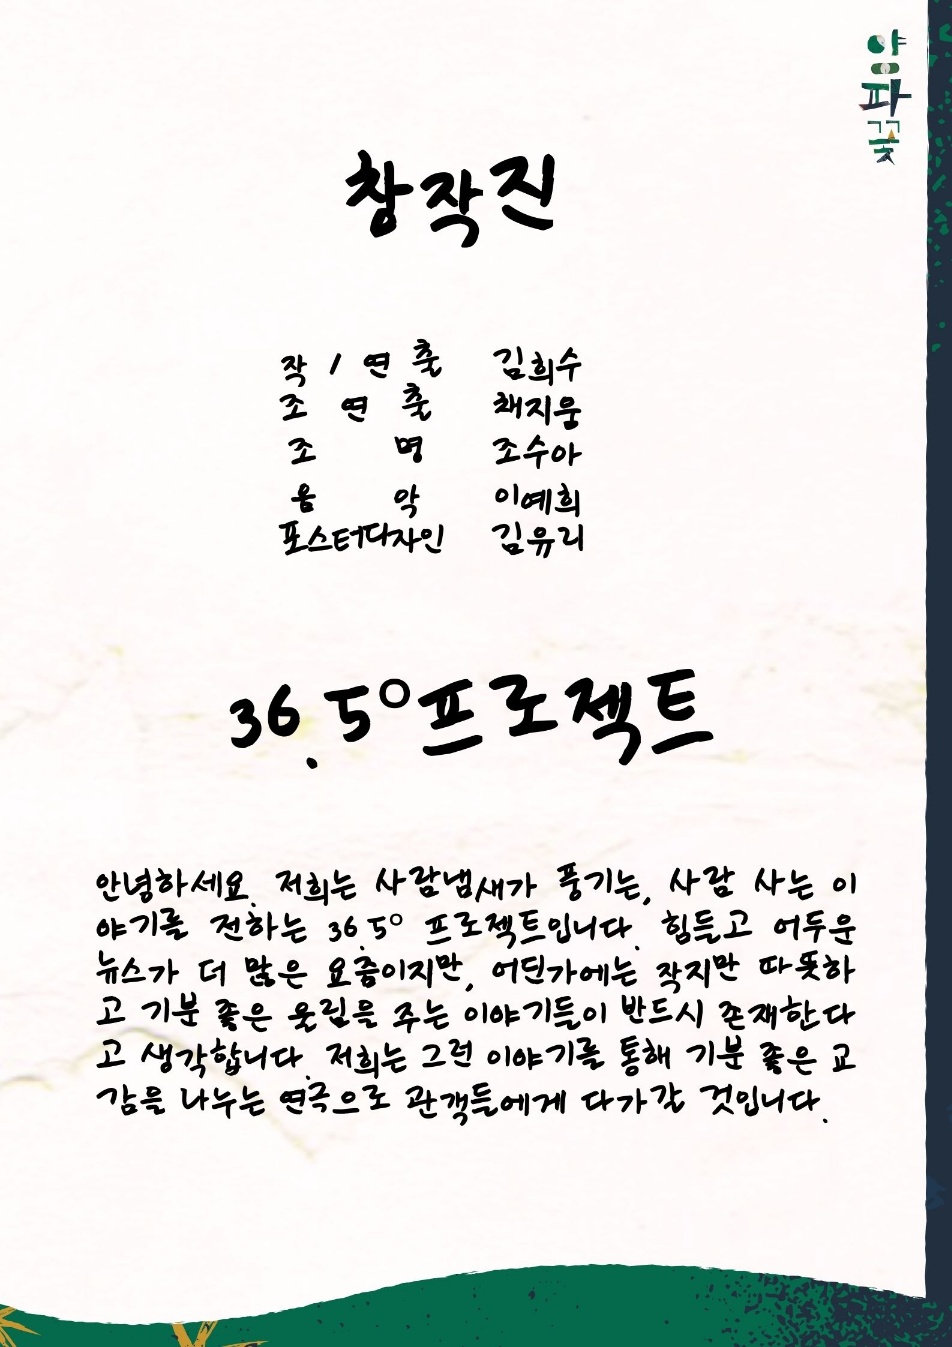 양파꽃
창작진
작 / 연 출 김희수
조 연 출 채지웅
조 명 조수아
음 악 이예희
포스터디자인 김유리
36.5°프로젝트
안녕하세요. 저희는 사람냄새가 풍기는, 사람 사는 이
야기를 전하는 36.5° 프로젝트입니다. 힘들고 어두운
뉴스가 더 많은 요즘이지만, 어딘가에는 작지만 따뜻하
고 기분 좋은 울림을 주는 이야기들이 반드시 존재한다
고 생각합니다. 저희는 그런 이야기를 통해 기분 좋은 교
감을 나누는 연극으로 관객들에게 다가갈 것입니다.